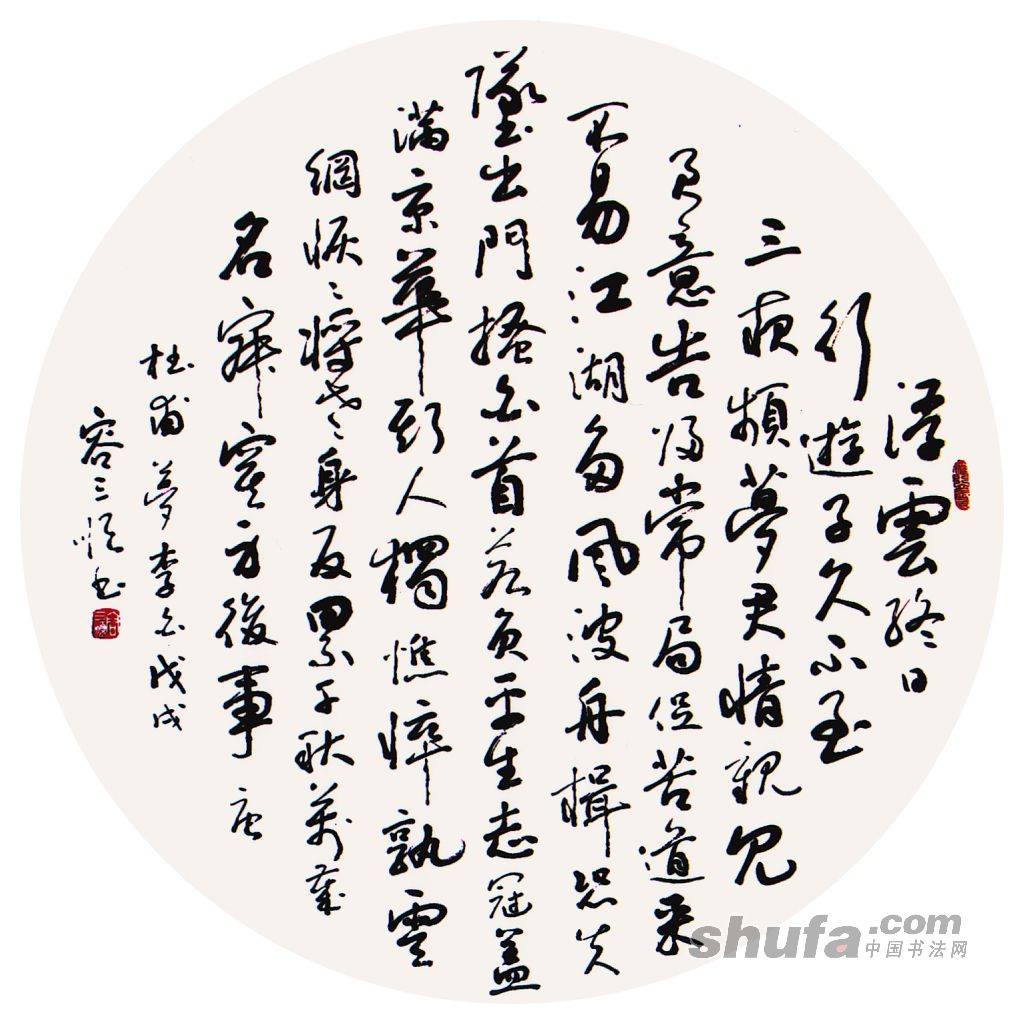 浮雲終日
行遊子久不至
三夜頻夢君情親見
君意告歸常局促苦道来
不易江湖多風波舟楫恐失
墜出門搔白首若負平生志冠蓋
滿京華斯人獨憔悴孰雲
網恢々將老身反累千秋萬歲
名寂寞身後事唐
杜甫夢李白戊戌
容三書
shufa.com
中国书法网